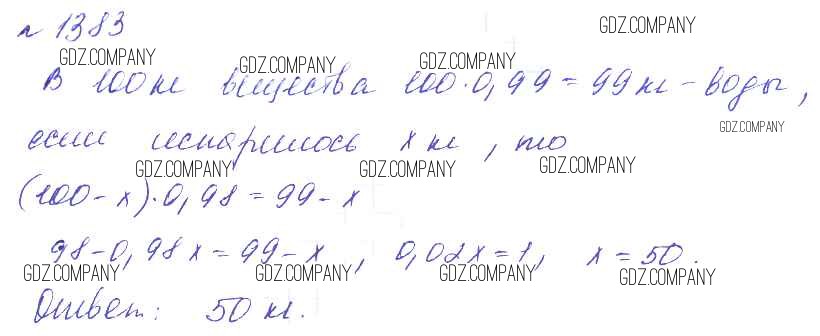 № 1383
GDZ.COMPANY
GDZ.COMPANY GDZ.COMPANY GDZ.COMPANY
В 100 кг вещества 100·0,99 = 99 кг - воды,
GDZ.COMPANY
если испарилось x кг, то
GDZ.COMPANY GDZ.COMPANY GDZ.COMPANY
(100 - x)·0,98 = 99 - x
98 - 0,98x = 99 - x, 0,02x = 1, x = 50.
GDZ.COMPANY GDZ.COMPANY GDZ.COMPANY GDZ.COMPANY
Ответ: 50 кг.